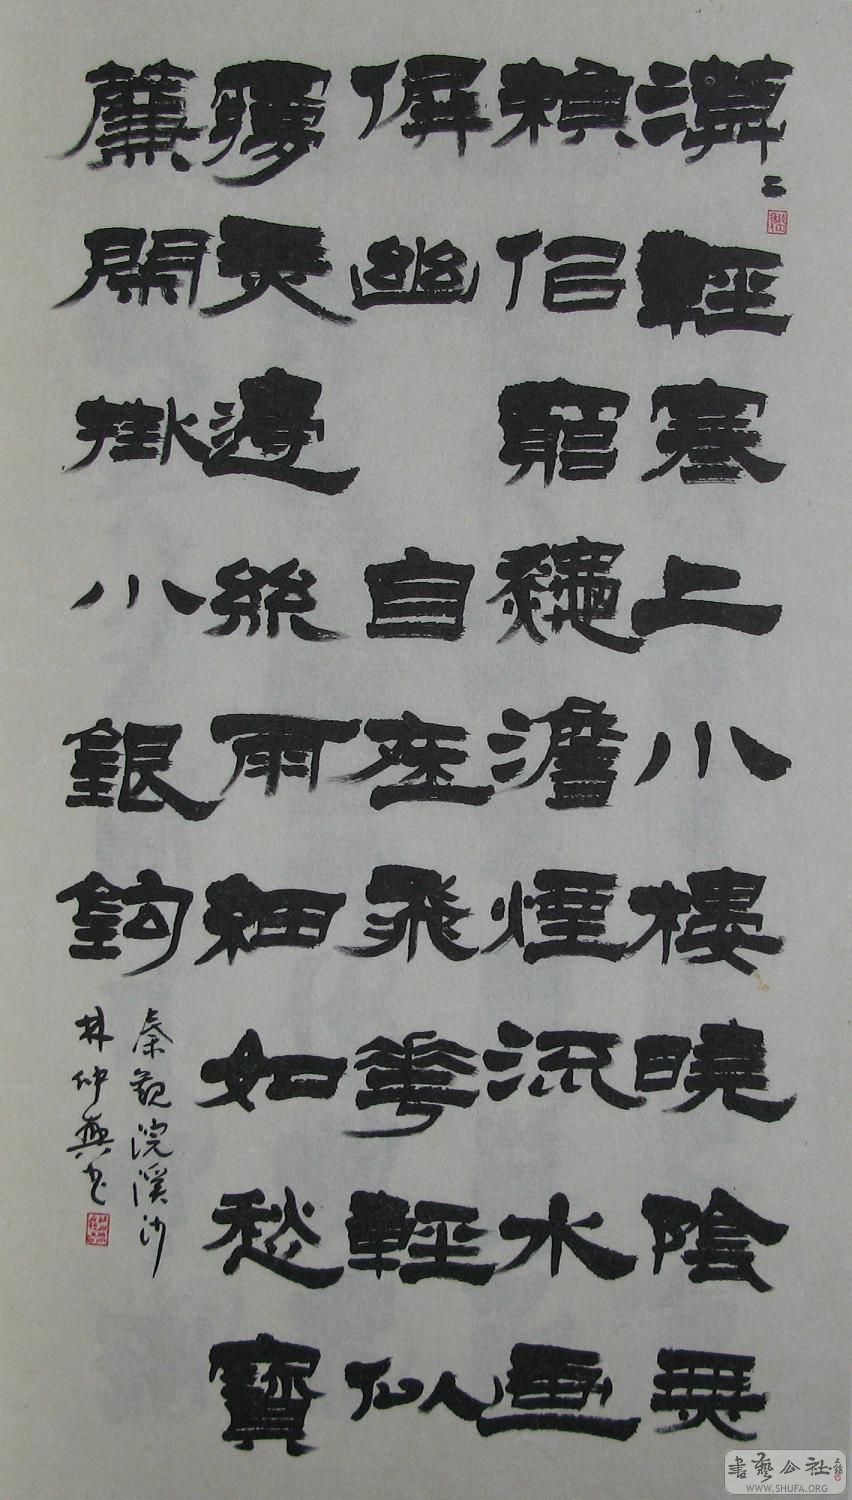 漠〻輕寒上小樓曉陰無
賴佀窮龝澹煙流水画
屏幽 自在飛華輕似
夢无邊絲雨細如愁寶
簾開掛小銀鉤
秦观浣溪沙
林仲興书
書藝公社
WWW.SHUFA.ORG